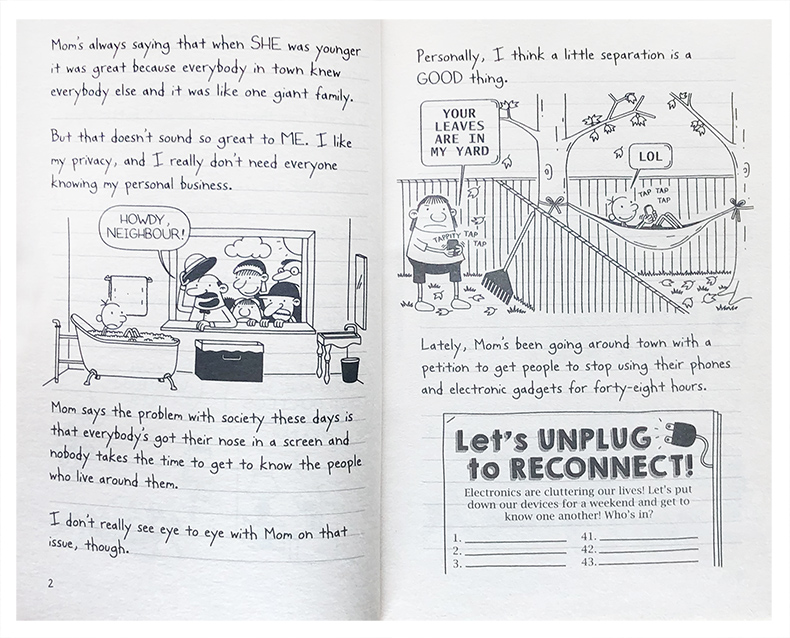 Mom's always saying that when SHE was younger
it was great because everybody in town knew
everybody else and it was like one giant family.
But that doesn't sound so great to ME. I like
my privacy, and I really don't need everyone
knowing my personal business.
HOWDY,
NEIGHBOUR!
Mom says the problem with society these days is
that everybody's got their nose in a screen and
nobody takes the time to get to know the people
who live around them.
I don't really see eye to eye with Mom on that
issue, though.
2
Personally, I think a little separation is a
GOOD thing.
YOUR
LEAVES
ARE IN
MY YARD
LOL
TAP TAP
TAP
TAPPITY TAP
TAP
Lately, Mom's been going around town with a
petition to get people to stop using their phones
and electronic gadgets for forty-eight hours.
Let's UNPLUG
to RECONNECT!
Electronics are cluttering our lives! Let's put
down our devices for a weekend and get to
know one another! Who's in?
1.
2.
3.
41.
42.
43.